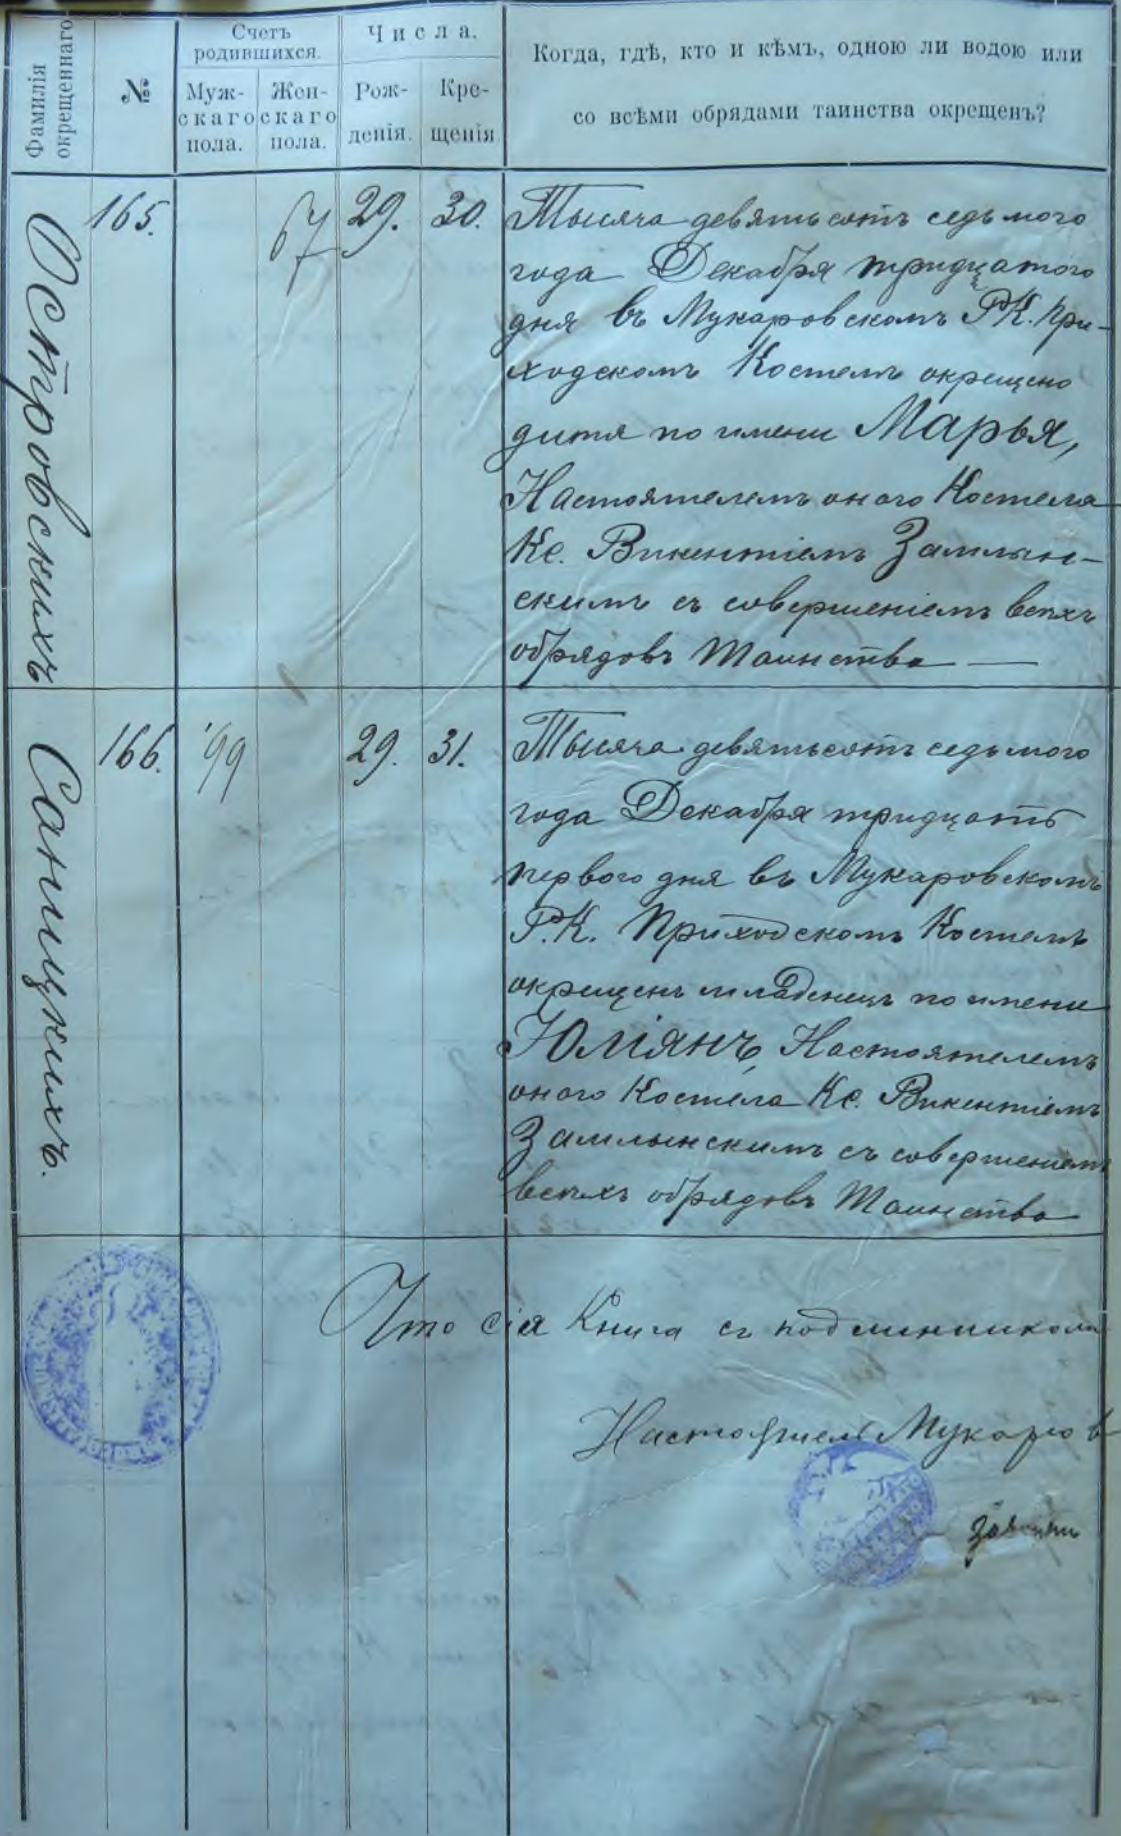 Фамилія окрещеннаго
№
Счетъ родившихся.
Муж-скаго пола.
Жен-скаго пола.
Числа.
Рож-денія.
Кре-щенія
Когда, гдѣ, кто и кѣмъ, одною ли водою или
со всѣми обрядами таинства окрещенъ?
Островскихъ
165.
67
29.
30.
Тысяча девятьсотъ седьмого
года Декабря тридцатого
дня въ Мукаровскомъ Р.К. При-
ходскомъ Костелѣ окрещено
дитя по имени Марья,
Настоятелемъ оного Костела
Кс. Викентіемъ Замлын-
скимъ съ совершеніемъ всѣхъ
обрядовъ Таинства —
Саницкихъ.
166.
99
29.
31.
Тысяча девятьсотъ седьмого
года Декабря тридцать
первого дня въ Мукаровскомъ
Р.К. Приходскомъ Костелѣ
окрещенъ младенецъ по имени
Юліянъ, Настоятелемъ
оного Костела Кс. Викентіемъ
Замлынскимъ съ совершеніемъ
всѣхъ обрядовъ Таинства
Что сія Книга съ подлинникомъ
Настоятель Мукаров